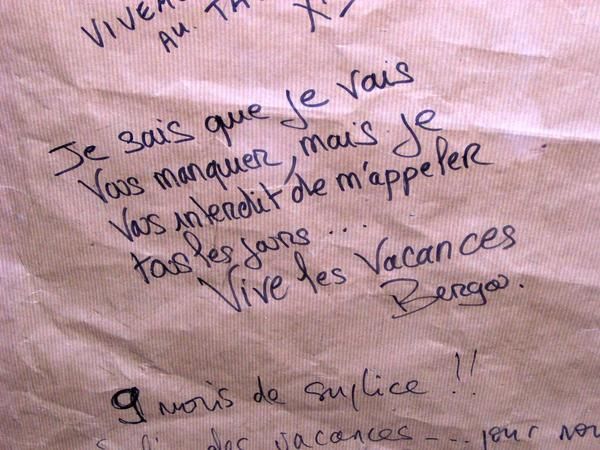 VIVEM
AU TA
Je sais que je vais
vous manquer, mais je
vous interdit de m'appeler
tous les jours ...
Vive les vacances
Bergoo.
9 mois de suplice !!
des vacances --... pour nou